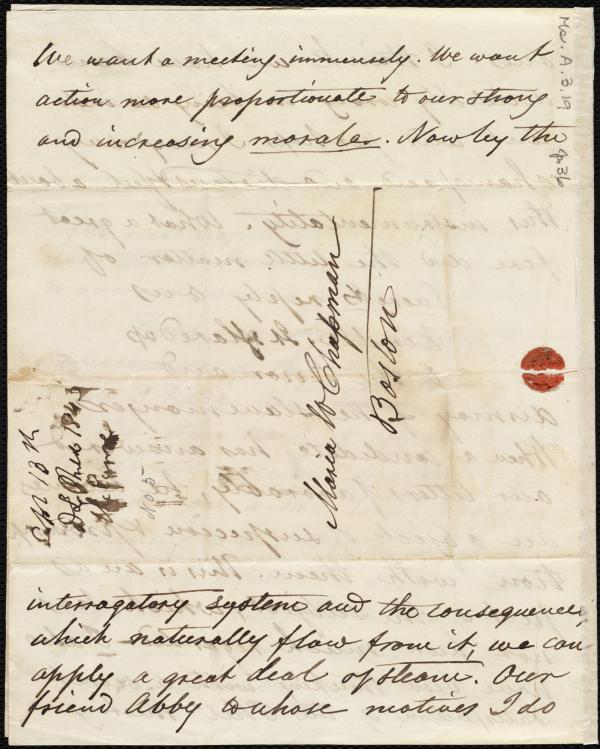 We want a meeting immensely. We want
action more proportionate to our strong
and increasing morale. Now by the
Maria W Chapman
Boston
No 5
Ms. A. 9. 2. 19
p 36
interrogatory system and the consequences
which naturally flow from it, we can
apply a great deal of steam. Our
friend Abby to whose motives I do